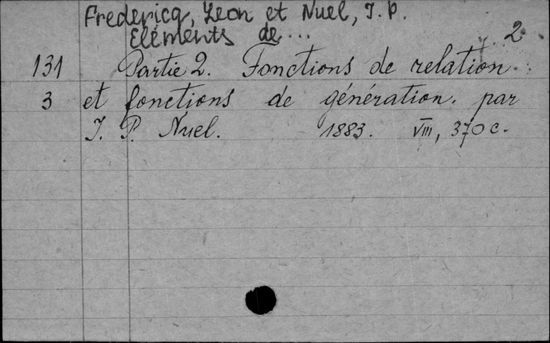 Fredericq, Leon et Nuel, J. P.
Eléments de... 2
131 Partie 2. Fonctions de relation
3 et fonctions de génération. par
J. P. Nuel. 1883. VIII, 370 c.